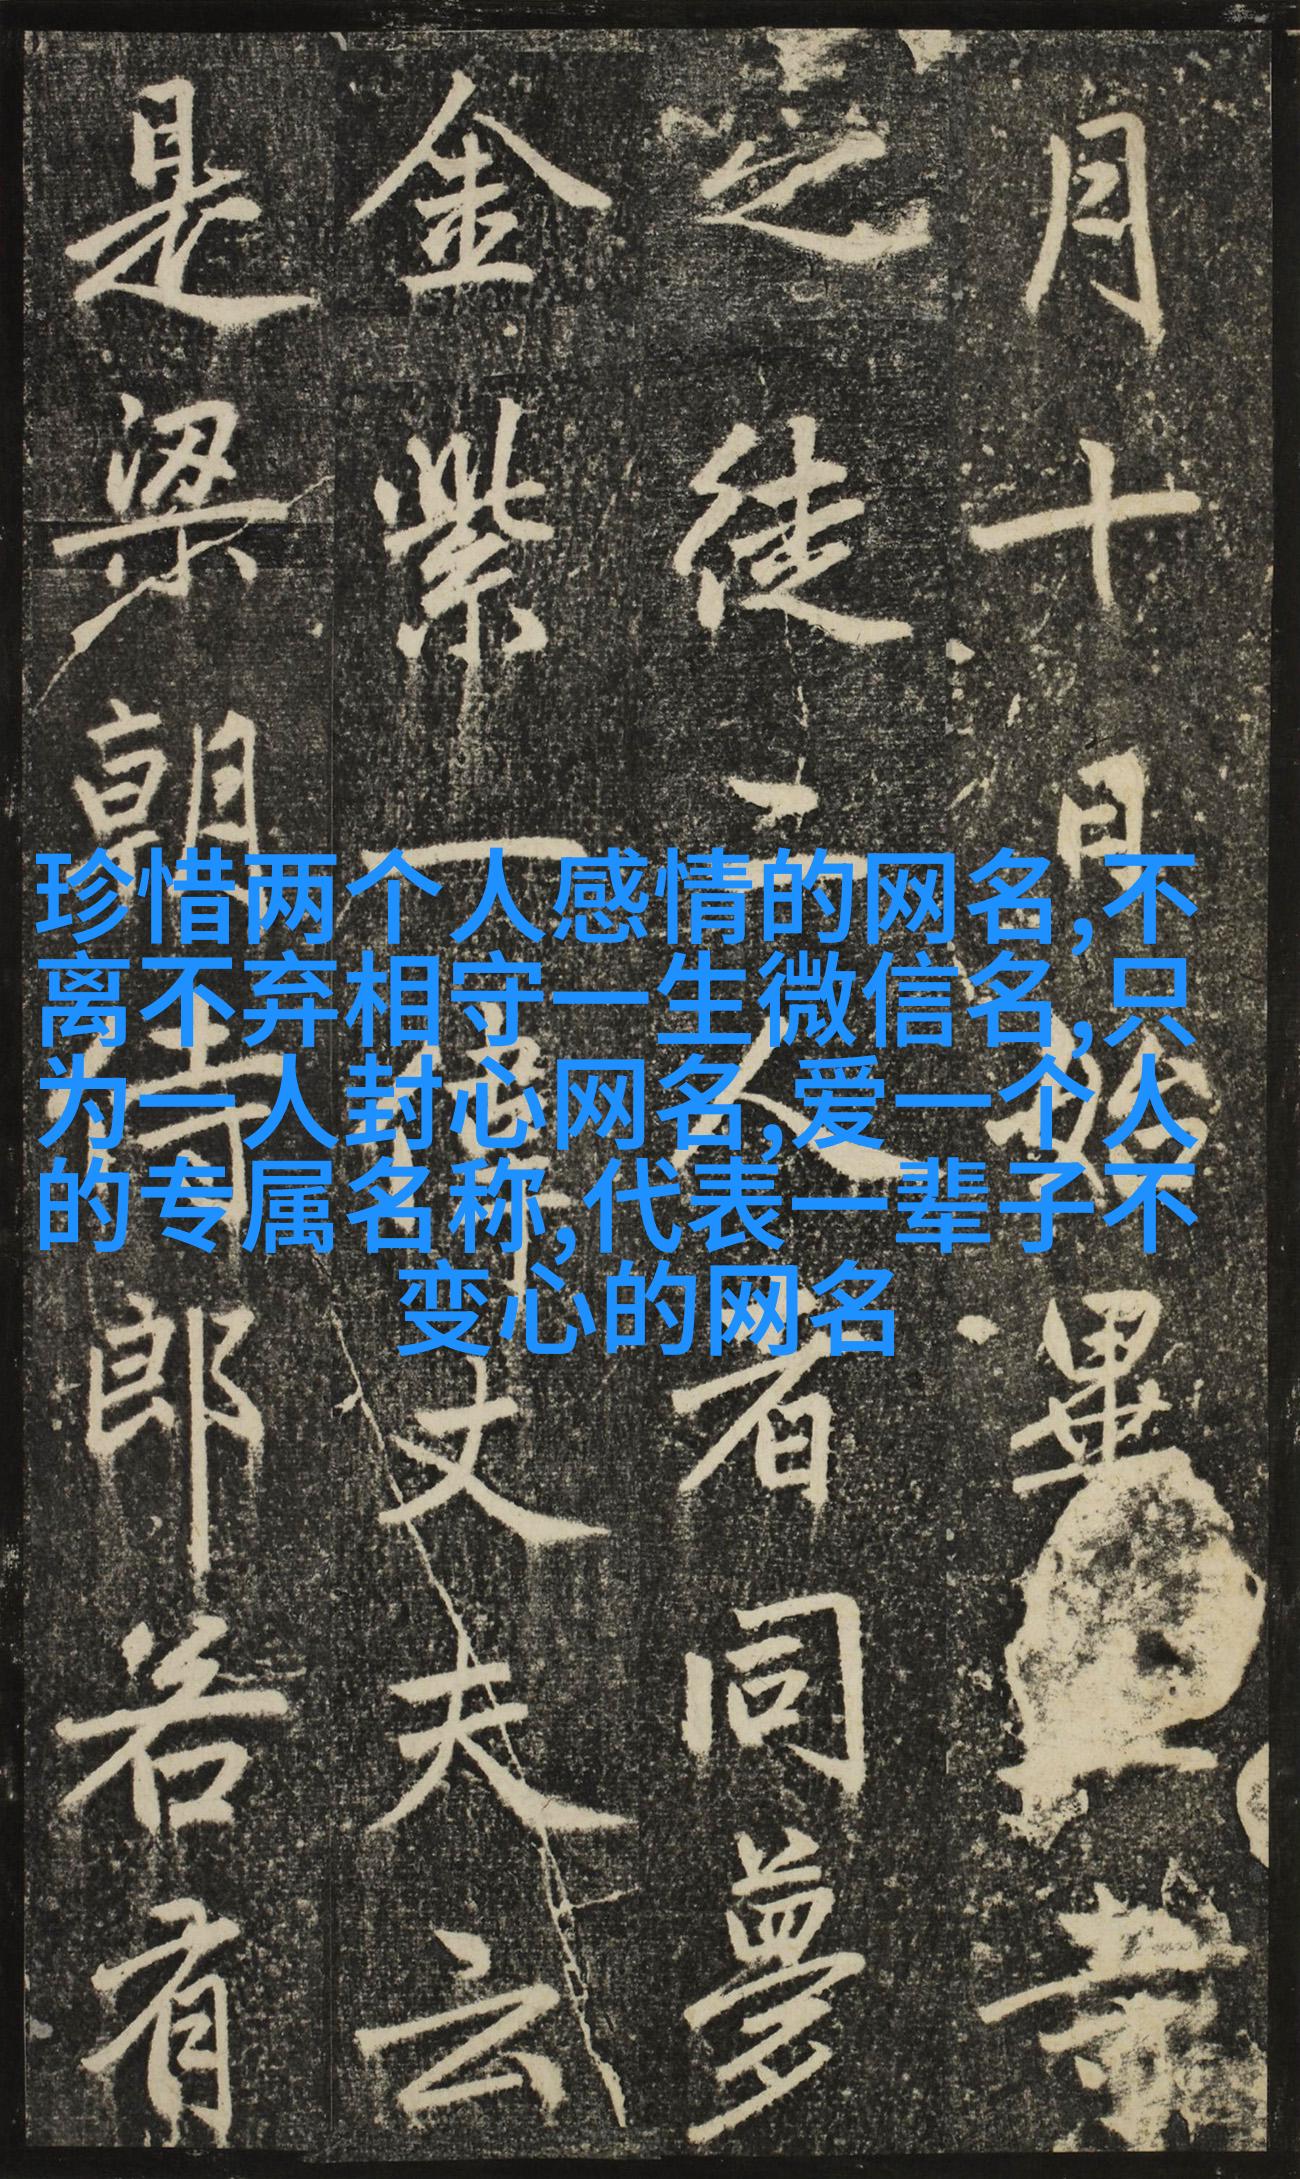 月十日始畢
之徒二人者同夢
金紫一偉丈夫云
是梁朝侍郎若有
珍惜两个人感情的网名,不
离不弃相守一生微信名,只
为一人封心网名,爱一个人
的专属名称,代表一辈子不
变心的网名